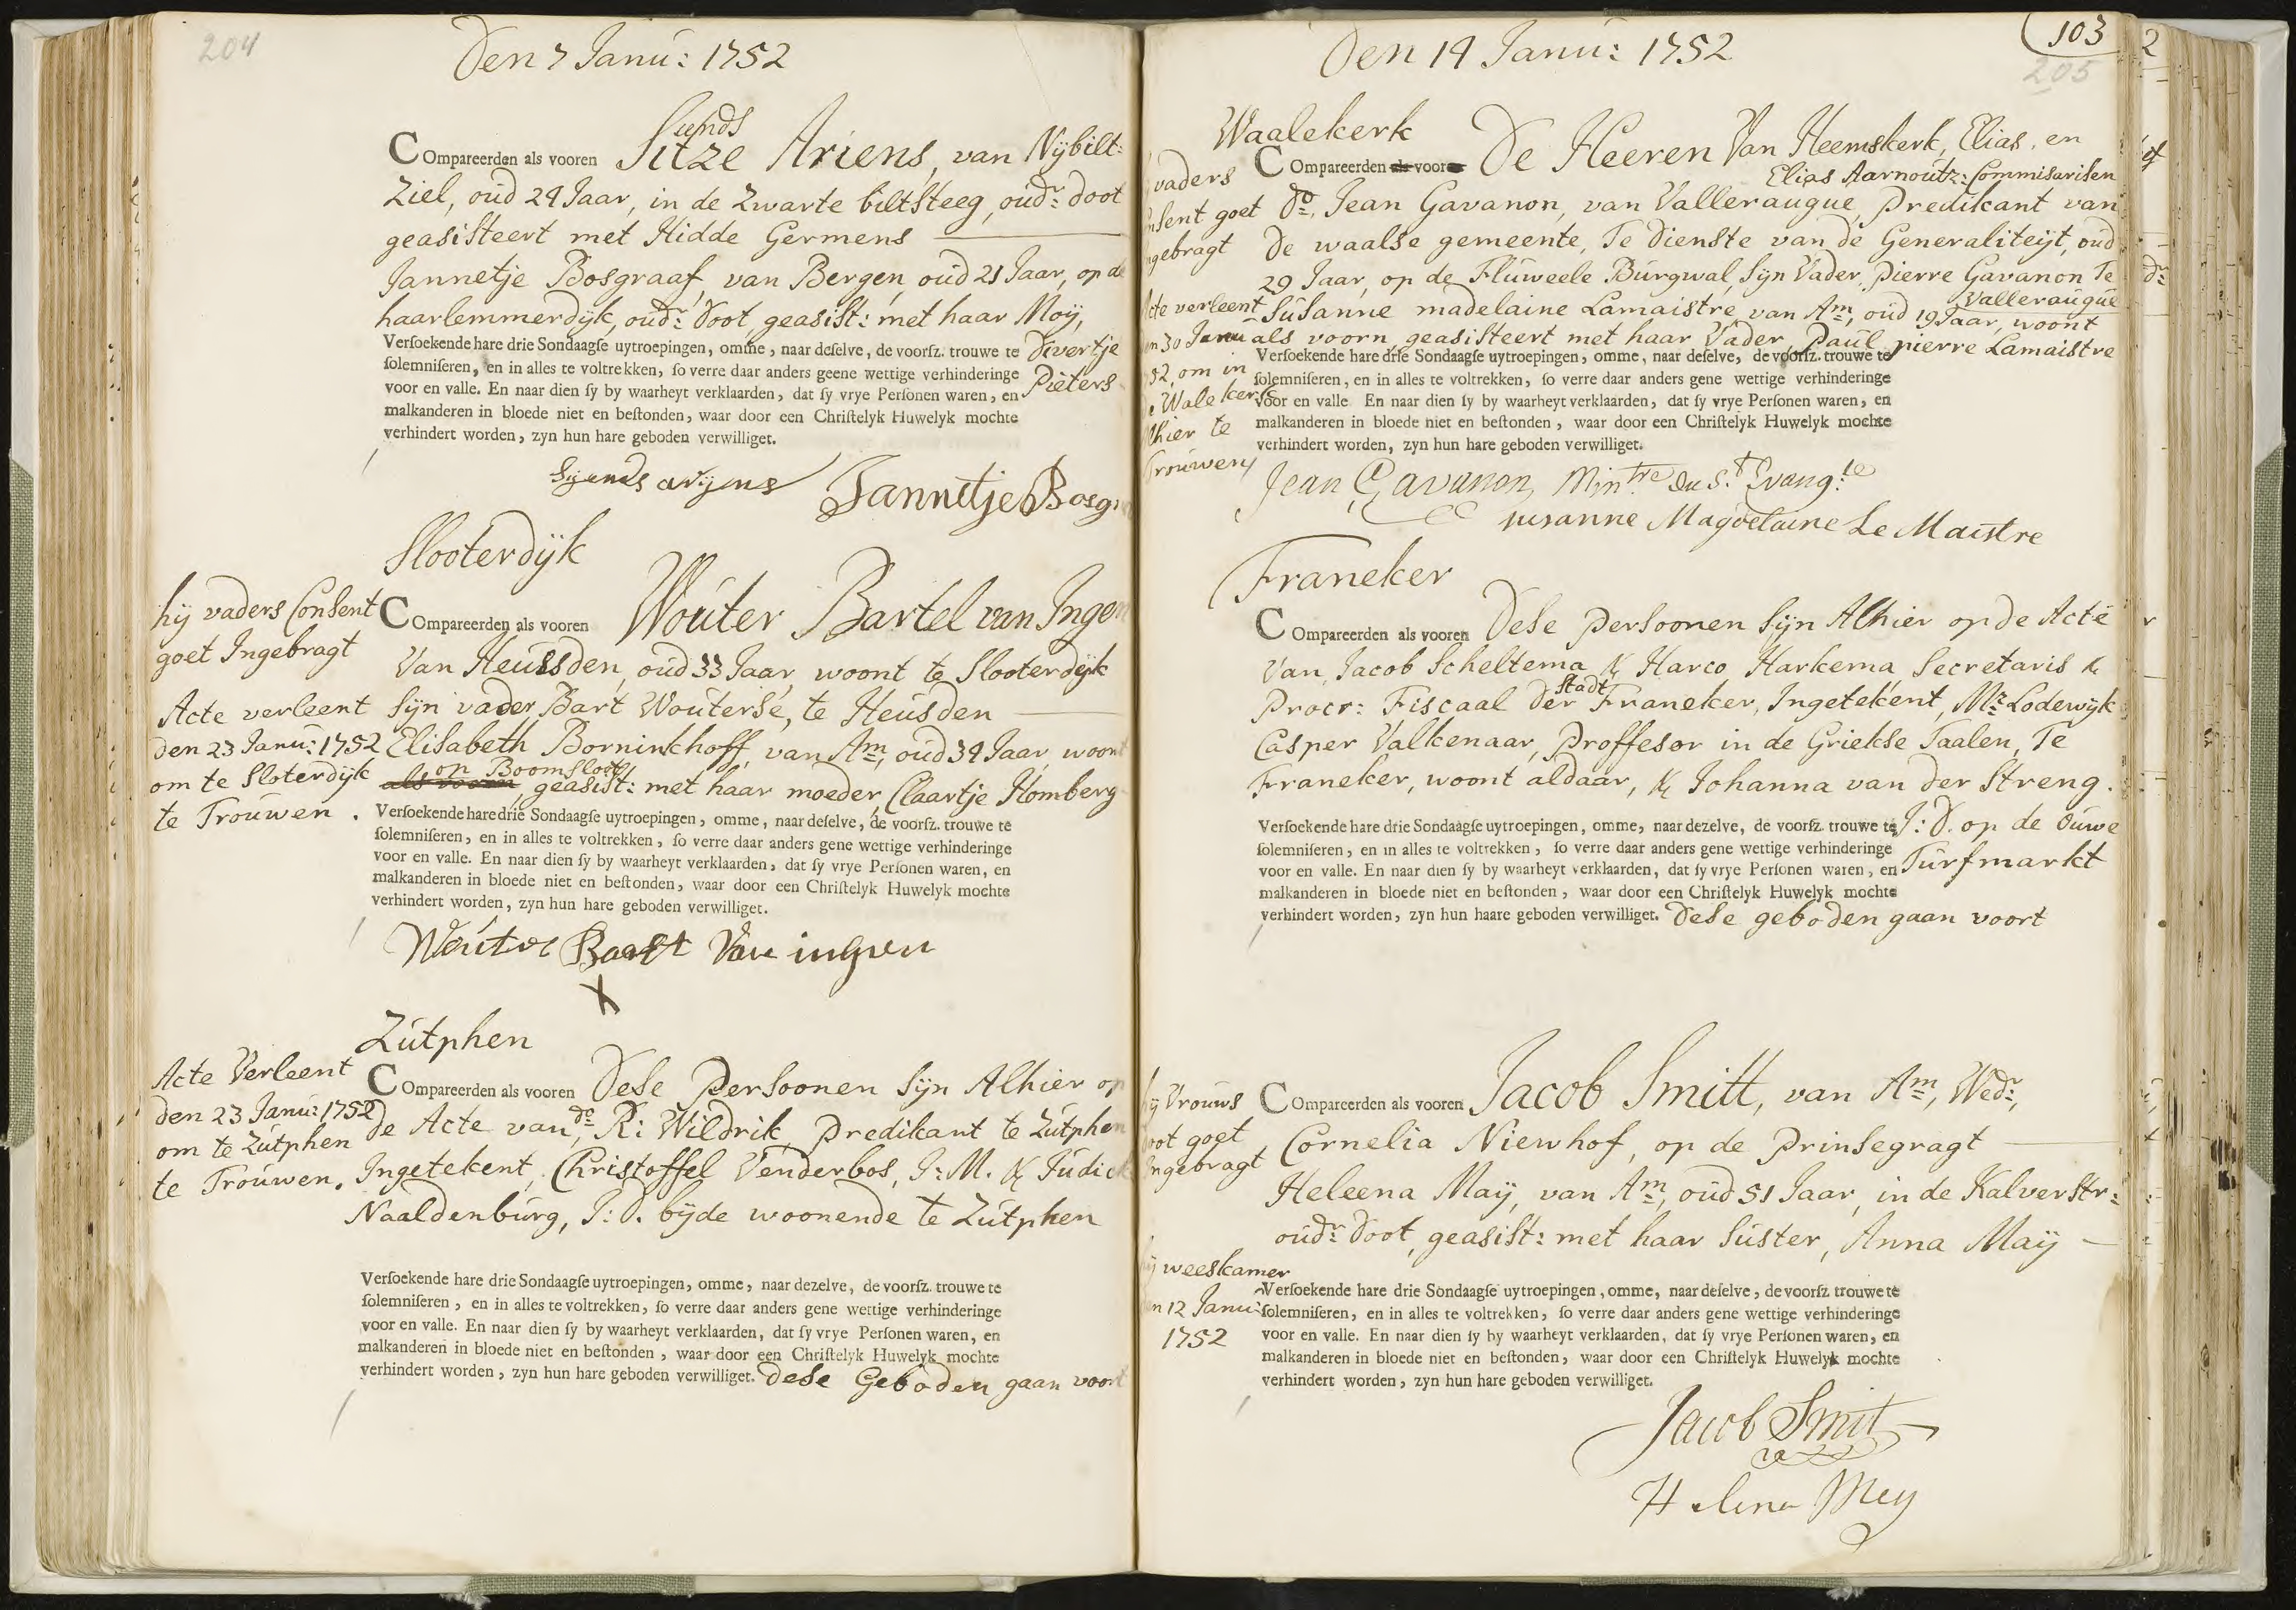 204
Den 7 Janu: 1752
Sijnds
Compareerden als vooren Sitze Ariens, van Nijbilt:
Ziel, oud 24 Jaar, in de Zwarte biltsteeg, oudr: doot
geasisteert met Hidde Germens
Jannetje Bosgraaf, van Bergen, oud 21 Jaar, op de
haarlemmerdijk, oudr: doot geasist: met haar Moij,
Versoekende hare drie Sondaagse uytroepingen, omme, naar deselve, de voorsz. trouwe te Divertje
solemniseren, en in alles te voltrekken, so verre daar anders geene wettige verhinderinge
voor en valle. En naar dien sy by waarheyt verklaarden, dat sy vrye Personen waren, en Pieters
malkanderen in bloede niet en bestonden, waar door een Christelyk Huwelyk mochte
verhindert worden, zyn hun hare geboden verwilliget.
Sijends arijens Jannetje Bosgr
Slooterdijk
hij vaders Consent
goet Ingebragt
Acte verleent
den 23 Janu: 1752
om te Sloterdijk
te Trouwen.
Compareerden als vooren Wouter Bartel van Ingen
Van Heussden, oud 33 Jaar, woont te Slooterdijk
Sijn vader Bart Wouterse, te Heusden
Elisabeth Borninkhoff, van Am, oud 34 Jaar, woont
op Boomsloot
als vooren, geasist: met haar moeder, Claartje Homberg
Versoekende hare drie Sondaagse uytroepingen, omme, naar deselve, de voorsz. trouwe te
solemniseren, en in alles te voltrekken, so verre daar anders gene wettige verhinderinge
voor en valle. En naar dien sy by waarheyt verklaarden, dat sy vrye Personen waren, en
malkanderen in bloede niet en bestonden, waar door een Christelyk Huwelyk mochte
verhindert worden, zyn hun hare geboden verwilliget.
Wouter Bart Van ingen
X
Zutphen
Acte Verleent
den 23 Janu: 1752
om te Zutphen
te Trouwen.
Compareerden als vooren Dese Persoonen Sijn Alhier op
de Acte van Do, R: Wildrik, Predikant te Zutphen
Ingetekent, Christoffel Venderbos, J: M. & Judick
Naaldenburg, J: D. bijde woonende te Zutphen
Versoekende hare drie Sondaagse uytroepingen, omme, naar dezelve, de voorsz. trouwe te
solemniseren, en in alles te voltrekken, so verre daar anders gene wettige verhinderinge
voor en valle. En naar dien sy by waarheyt verklaarden, dat sy vrye Personen waren, en
malkanderen in bloede niet en bestonden, waar door een Christelyk Huwelyk mochte
verhindert worden, zyn hun hare geboden verwilliget. Dese Geboden gaan voort
Den 14 Janu: 1752
103
205
Waalekerk
vaders
nsent goet
ngebragt
Acte verleent
en 30 Janu
52, om in
de Wale kerk
Alhier te
Trouwen
Compareerden als vooren De Heeren Van Heemskerk, Elias, en
Elias Aarnoutz: Commisarisen
Do, Jean Gavanon, van Valleraugue, Predikant van
De waalse gemeente, Te Dienste van de Generaliteijt, oud
29 Jaar, op de Fluweele Burgwal, Sijn Vader, Pierre Gavanon Te
Valleraugue
Susanne madelaine Lamaistre, van Am, oud 19 Jaar, woont
als voorn, geasisteert met haar Vader, Paul pierre Lamaistre
Versoekende hare drie Sondaagse uytroepingen, omme, naar deselve, de voorsz. trouwe te
solemniseren, en in alles te voltrekken, so verre daar anders gene wettige verhinderinge
voor en valle. En naar dien sy by waarheyt verklaarden, dat sy vrye Personen waren, en
malkanderen in bloede niet en bestonden, waar door een Christelyk Huwelyk mochte
verhindert worden, zyn hun hare geboden verwilliget.
Jean Gavanon, Mintre du St. Evangle
susanne Magdelaine Le Maistre
Franeker
Compareerden als vooren Dese Persoonen Sijn Alhier op de Acte
Van, Jacob Scheltema & Harco Harkema, Secretaris &
Stadt
Procr: Fiscaal der Franeker, Ingetekent, Mr: Lodewijk
Casper Valkenaar, Proffesor in de Griekse Taalen, Te
Franeker, woont aldaar, & Johanna van der Streng.
Versoekende hare drie Sondaagse uytroepingen, omme, naar dezelve, de voorsz. trouwe te J: D. op de Ouwe
solemniseren, en in alles te voltrekken, so verre daar anders gene wettige verhinderinge
voor en valle. En naar dien sy by waarheyt verklaarden, dat sy vrye Personen waren, en Turfmarkt
malkanderen in bloede niet en bestonden, waar door een Christelyk Huwelyk mochte
verhindert worden, zyn hun haare geboden verwilliget. Dese geboden gaan voort
hij Vrouws
doot goet
Ingebragt
hij weeskamer
en 12 Janu:
1752
Compareerden als vooren Jacob Smitt, van Am, Wedr:,
Cornelia Niewhof, op de Prinsegragt
Heleena Maij, van Am, oud 51 Jaar, in de Kalverstr:
oudr: doot, geasist: met haar Suster, Anna Maij
Versoekende hare drie Sondaagse uytroepingen, omme, naar deselve, de voorsz trouwe te
solemniseren, en in alles te voltrekken, so verre daar anders gene wettige verhinderinge
voor en valle. En naar dien sy by waarheyt verklaarden, dat sy vrye Personen waren, en
malkanderen in bloede niet en bestonden, waar door een Christelyk Huwelyk mochte
verhindert worden, zyn hun hare geboden verwilliget.
Jacob Smit
Helena Mey